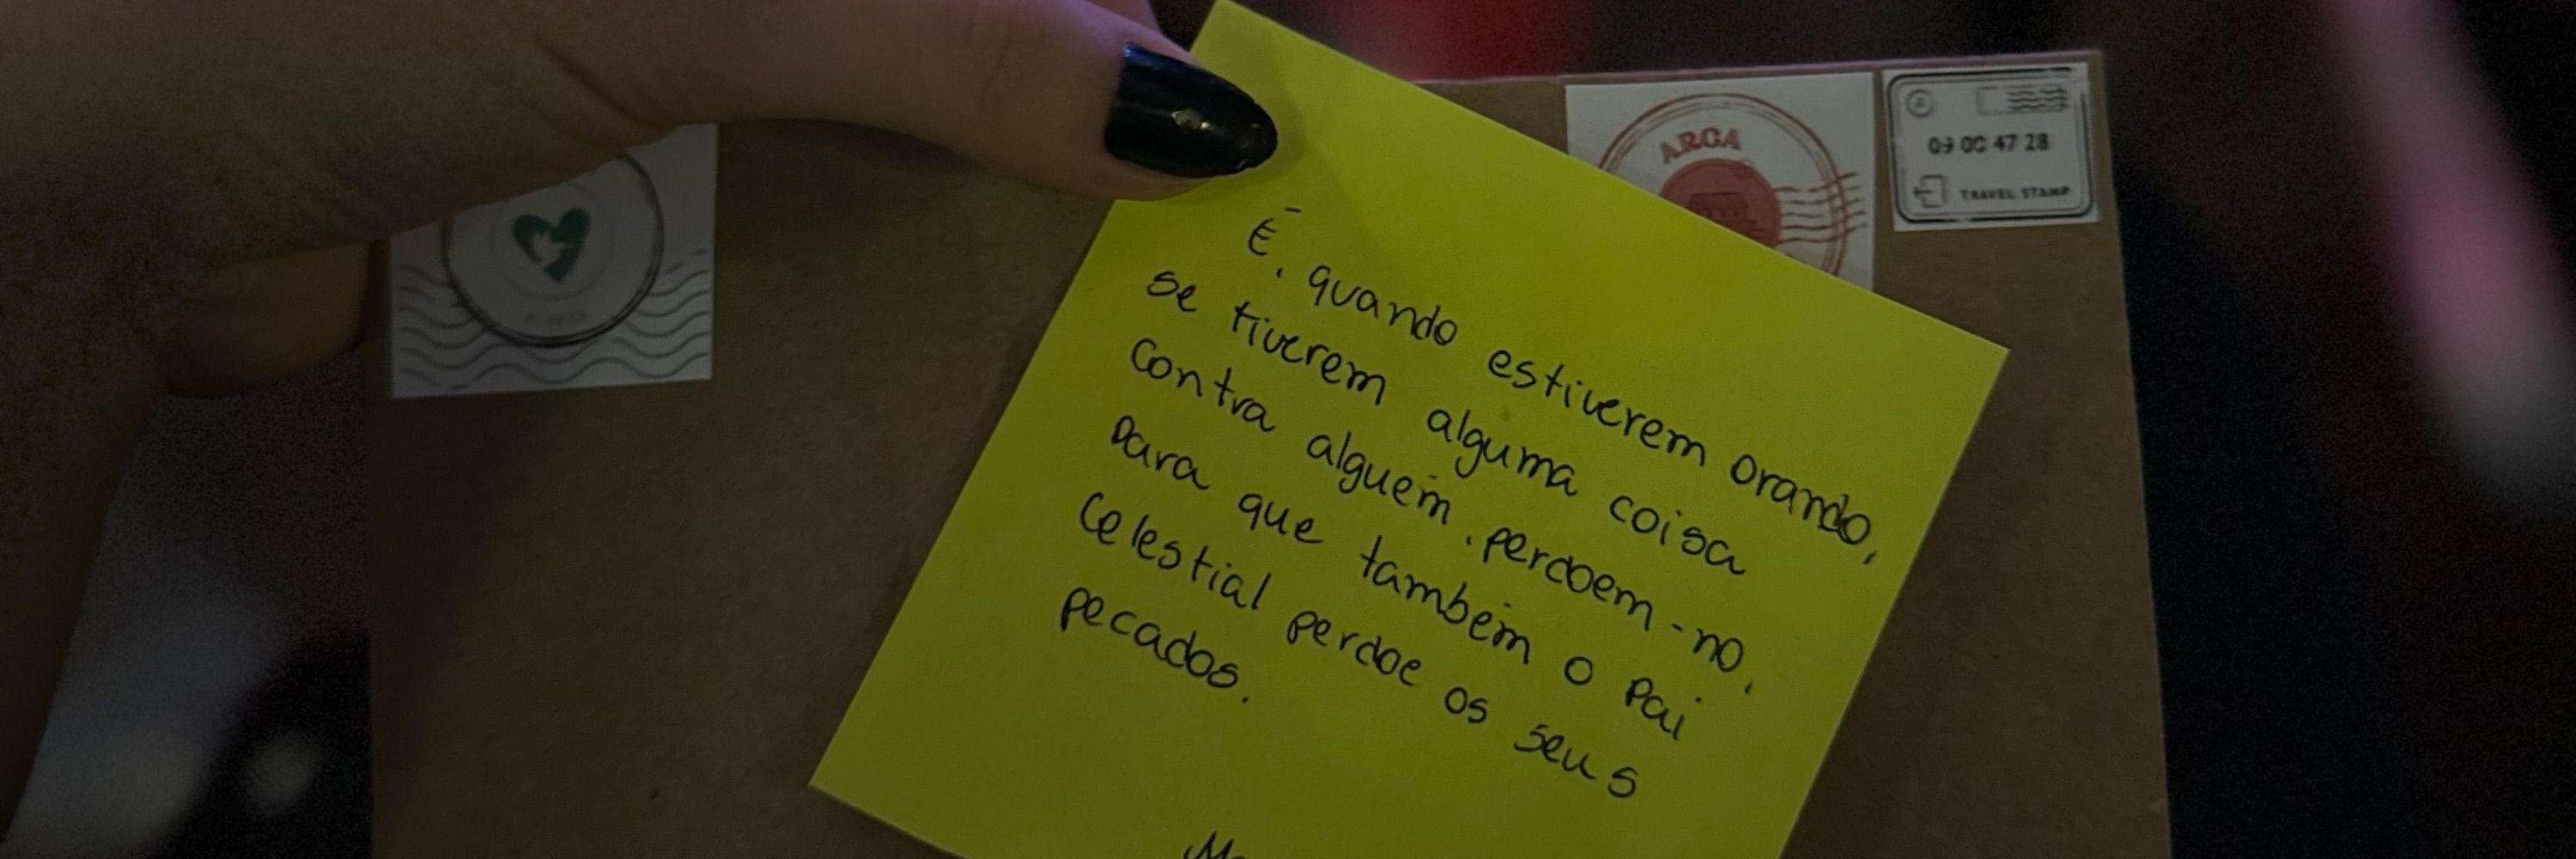 ARGA
09 00 47 28
TRAVEL STAMP
E, quando estiverem orando,
se tiverem alguma coisa
contra alguém, perdoem-no,
para que também o Pai
Celestial perdoe os seus
pecados.